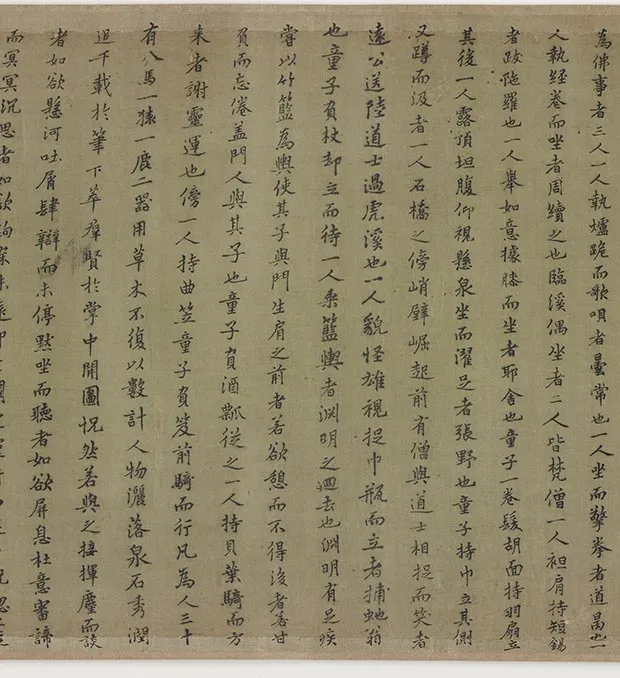 為佛事者三人一人執爐跪而歌唄者曇常也一人坐而擎拳者道昺也一
人執經卷而坐者周續之也臨溪偶坐者二人皆梵僧一人袒肩持短錫
者跋陁羅也一人舉如意據膝而坐者耶舍也童子一卷髮胡面持羽扇立
其後一人露頂坦腹仰視懸泉坐而濯足者張野也童子持巾立其側
又蹲而汲者一人石橋之傍峭壁崛起前有僧與道士相捉而笑者
遠公送陸道士過虎溪也一人貌怪雄視捉巾瓶而立者捕虵翁
也童子負杖却立而待一人乘籃輿者淵明之迴去也淵明有足疾
嘗以竹籃為輿使其子與門生肩之前者若欲憩而不得後者若甘
負而忘倦盖門人與其子也童子負酒瓢從之一人持貝葉騎而方
来者謝靈運也傍一人持曲笠童子負笈前騎而行凡為人三十
有八馬一猿一鹿二器用草木不復以數計人物灑落泉石秀潤
追千載於筆下萃群賢於掌中開圖怳然若與之接揮麈而談
者如欲懸河吐屑肆辯而未停默坐而聽者如欲屏息杜意審諦
而冥冥沉思者如欲